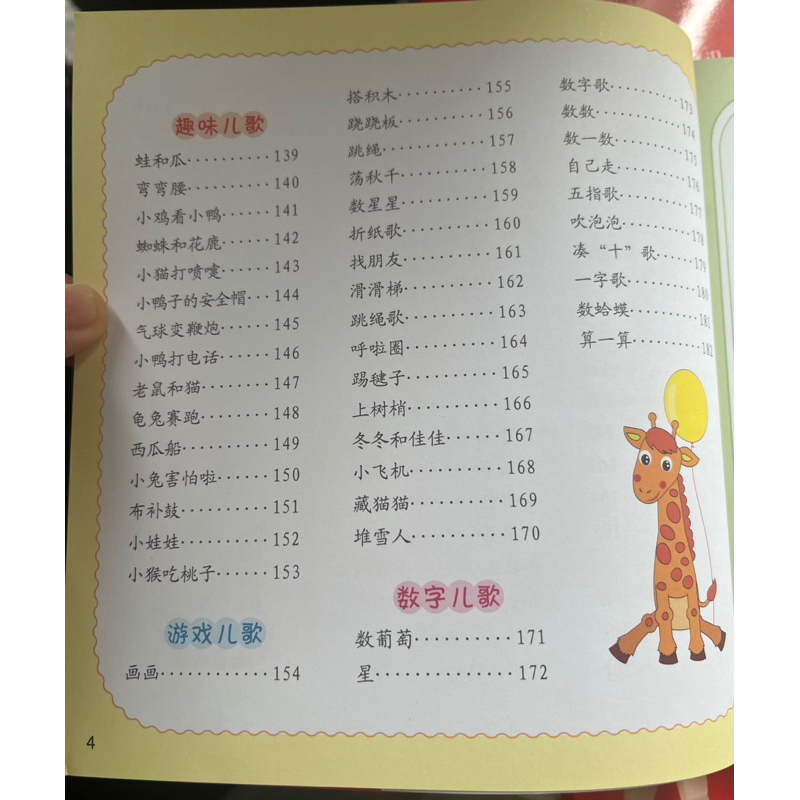 趣味儿歌
蛙和瓜··········139
弯弯腰··········140
小鸡看小鸭······141
蜘蛛和花鹿······142
小猫打喷嚏······143
小鸭子的安全帽···144
气球变鞭炮······145
小鸭打电话······146
老鼠和猫········147
龟兔赛跑········148
西瓜船··········149
小兔害怕啦······150
布补鼓··········151
小娃娃··········152
小猴吃桃子······153
游戏儿歌
画画············154
搭积木··········155
跷跷板··········156
跳绳············157
荡秋千··········158
数星星··········159
折纸歌··········160
找朋友··········161
滑滑梯··········162
跳绳歌··········163
呼啦圈··········164
踢毽子··········165
上树梢··········166
冬冬和佳佳······167
小飞机··········168
藏猫猫··········169
堆雪人··········170
数字儿歌
数葡萄··········171
星··············172
数字歌··········173
数数············174
数一数··········175
自己走··········176
五指歌··········177
吹泡泡··········178
凑“十”歌······179
一字歌··········180
数蛤蟆··········181
算一算··········182
4